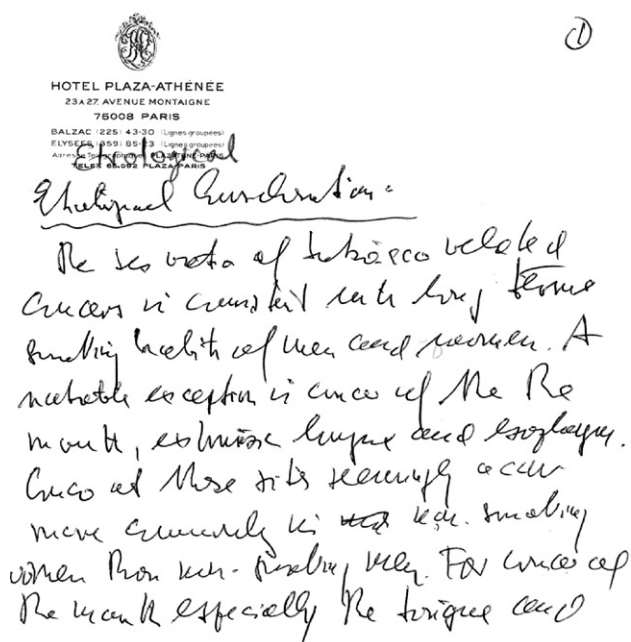 ①
HOTEL PLAZA-ATHÉNÉE
23 A 27, AVENUE MONTAIGNE
75008 PARIS
BALZAC (225) 43-30 (Lignes groupées)
ELYSEES (359) 85-23 (Lignes groupées)
Adresse Télégraphique PLAZATHENE-PARIS
TELEX 65.092 PLAZA PARIS
Etiological
Etiological Considerations
The sex ratio of tobacco related
cancers is consistent with long term
smoking habits of men and women. A
notable exception is cancer of the the
mouth, larynx and esophagus.
Cancer at these sites seemingly occur
more commonly in non-smoking
women than non-smoking men. For cancer of
the mouth especially the tongue and